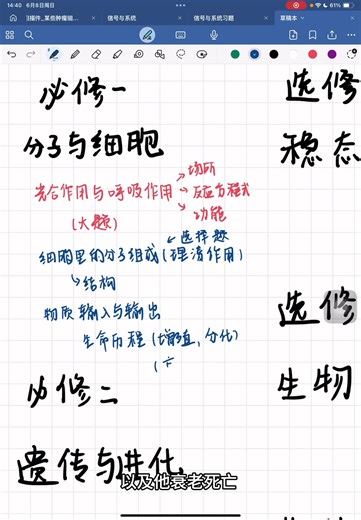 14:40 6月8日周日
81%
信号与系统
信号与系统习题
草稿本
必修一
选修
分子与细胞
稳态
光合作用与呼吸作用
场所
反应方程式
功能
(大题)
选择题
细胞里的分子组成(理清作用)
结构
物质输入与输出
选修
生命历程(增殖,分化)
必修二
生物
遗传与进化
以及他衰老死亡